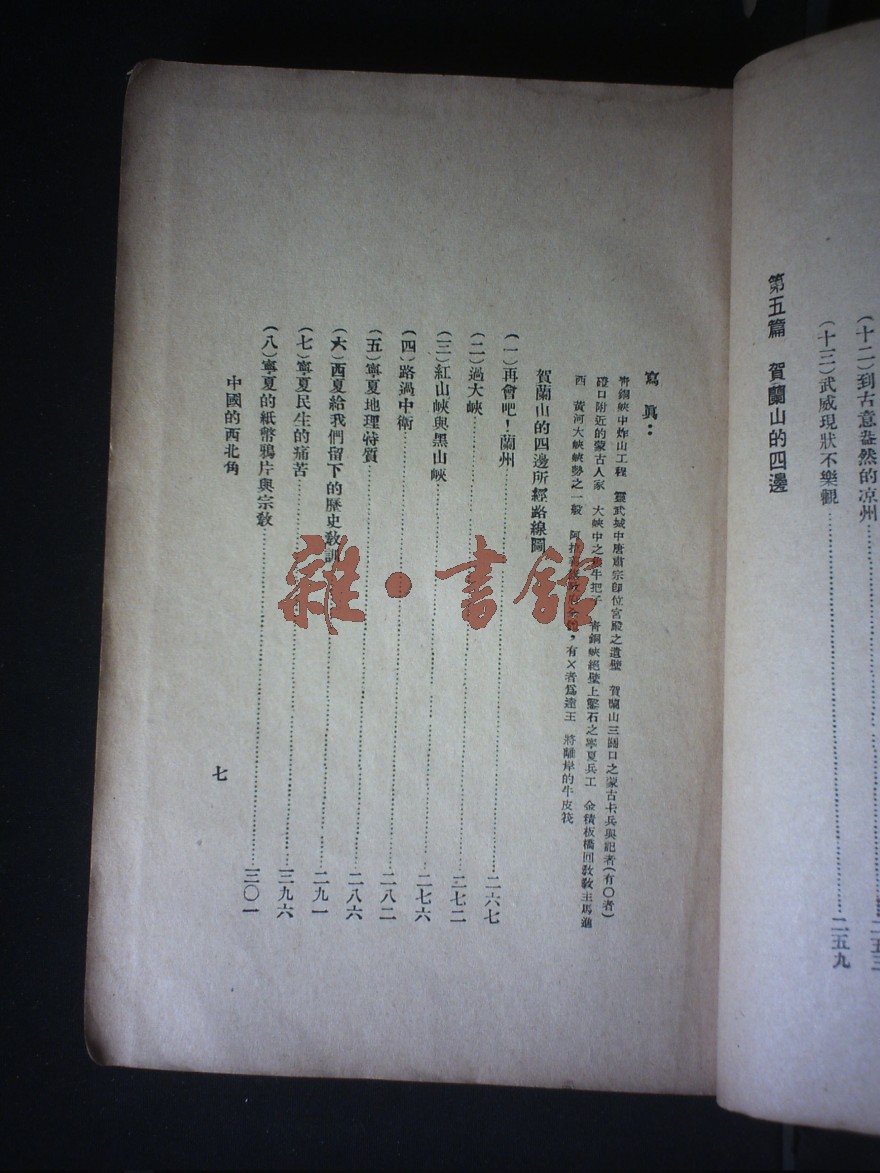 (十二)到古意盎然的涼州
(十三)武威現狀不樂觀 二五九
第五篇 賀蘭山的四邊
寫眞：
靑銅峽中炸山工程 靈武城中唐肅宗卽位宮殿之遺壁 賀蘭山三關口之蒙古卡兵與記者(有〇者)
磴口附近的蒙古人家 大峽中之 牛把子 靑銅峽絕壁上鑿石之寧夏兵工 金積板橋回敎敎主馬進
西 黃河大峽峽勢之一般 阿拉 ，有×者爲達王 將離岸的牛皮筏
賀蘭山的四邊所經路線圖
(一)再會吧！蘭州 二六七
(二)過大峽 二七二
(三)紅山峽與黑山峽 二七六
(四)路過中衛 二八二
(五)寧夏地理特質 二八六
(六)西夏給我們留下的歷史敎訓 二九一
(七)寧夏民生的痛苦 三九六
(八)寧夏的紙幣鴉片與宗敎 三〇一
中國的西北角
七
雜·書館